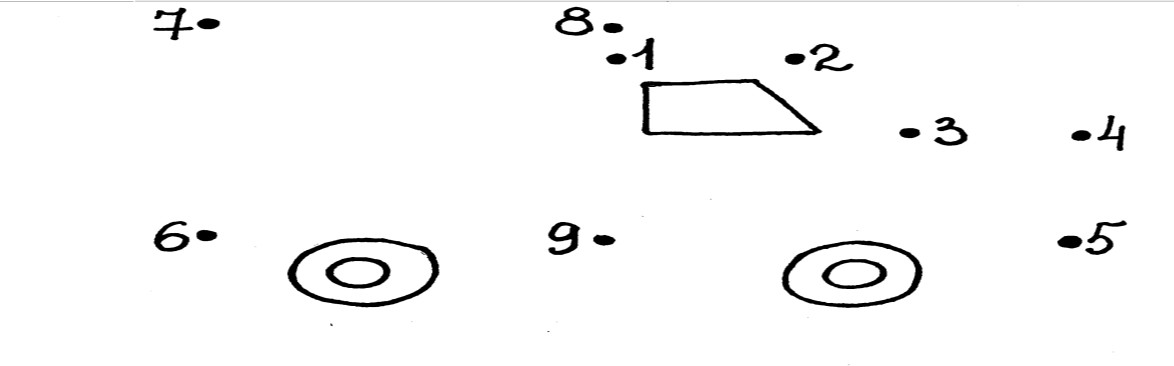 7 8
1 2
3 4
6 9 5